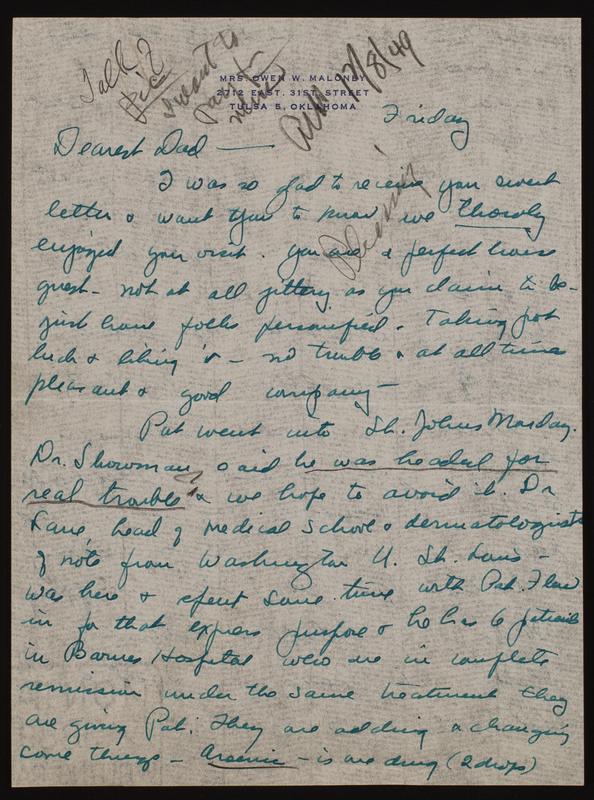 Talk
I want to
Ans 7/8/49
MRS. OWEN W. MALONEY
2712 EAST 31ST STREET
TULSA 5, OKLAHOMA
Friday
Dearest Dad —
I was so glad to receive your sweet
letter & want you to know we thoroly
enjoyed your visit. You are a perfect house
guest - not at all jittery as you claim to be -
just home folks personified. Taking pot
luck & liking it - no trouble & at all times
pleasant & good company -
Pat went into St. Johns Monday.
Dr. Showman said he was headed for
real trouble & we hope to avoid it. Dr
Lane, head of Medical School & dermatologist
of note from Washington U. St. Louis -
was here & spent some time with Pat. Flew
in for that express purpose & he has 6 patients
in Barnes Hospital who are in complete
remission under the same treatment they
are giving Pat. They are adding & changing
some things - Arsenic - is one drug (2 drops)